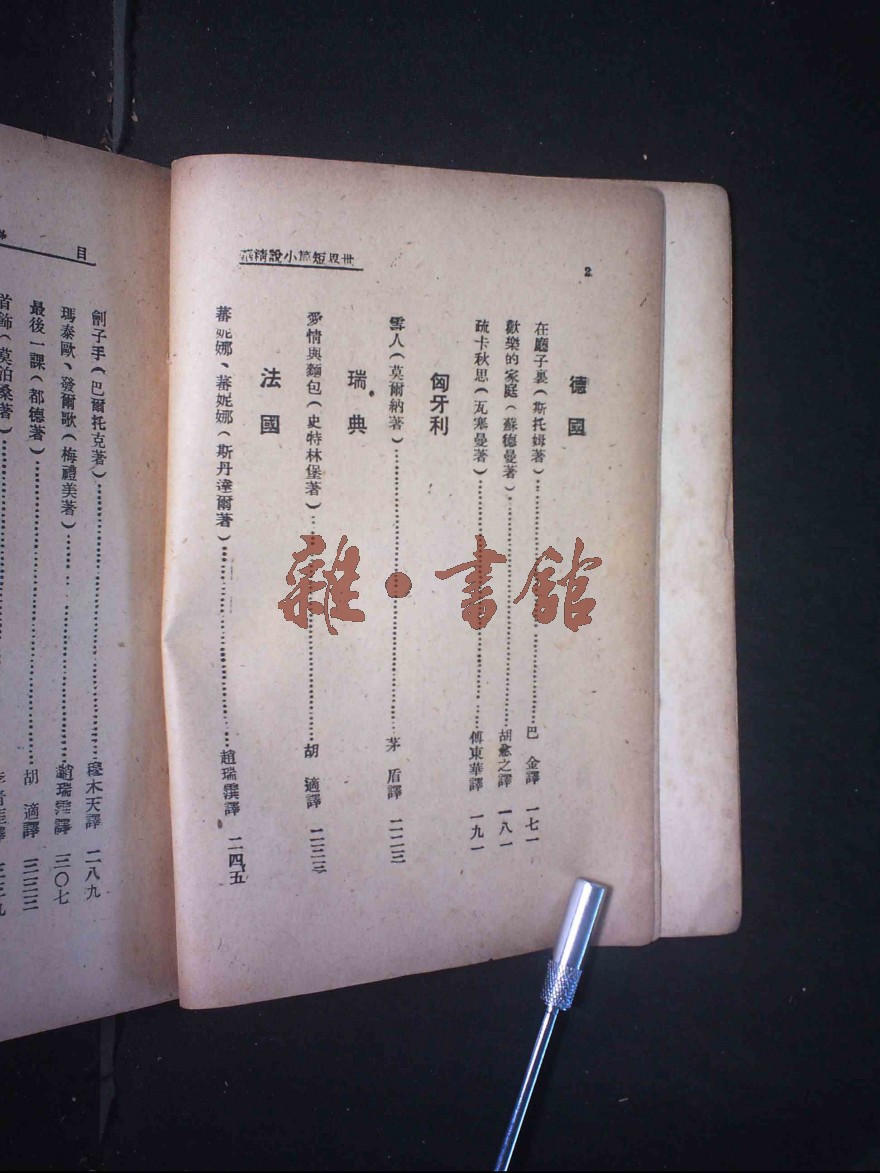 2
世界短篇小說精選
德國
在廳子裏(斯托姆著)……巴金譯 一七一
歡樂的家庭(蘇德曼著)……胡愈之譯 一八一
疏卡秋思(瓦塞曼著)……傅東華譯 一九一
匈牙利
雪人(莫爾納著)……茅盾譯
瑞典
愛情與麵包(史特林堡著)……胡適譯
法國
蕃妮娜、蕃妮娜(斯丹達爾著)……趙瑞霟譯 二四五
目
劊子手(巴爾托克著)……穆木天譯 二八九
瑪泰歐、發爾歌(梅禮美著)……趙瑞霟譯 三〇七
最後一課(都德著)……胡適譯
首飾(莫泊桑著)……
雜·書館